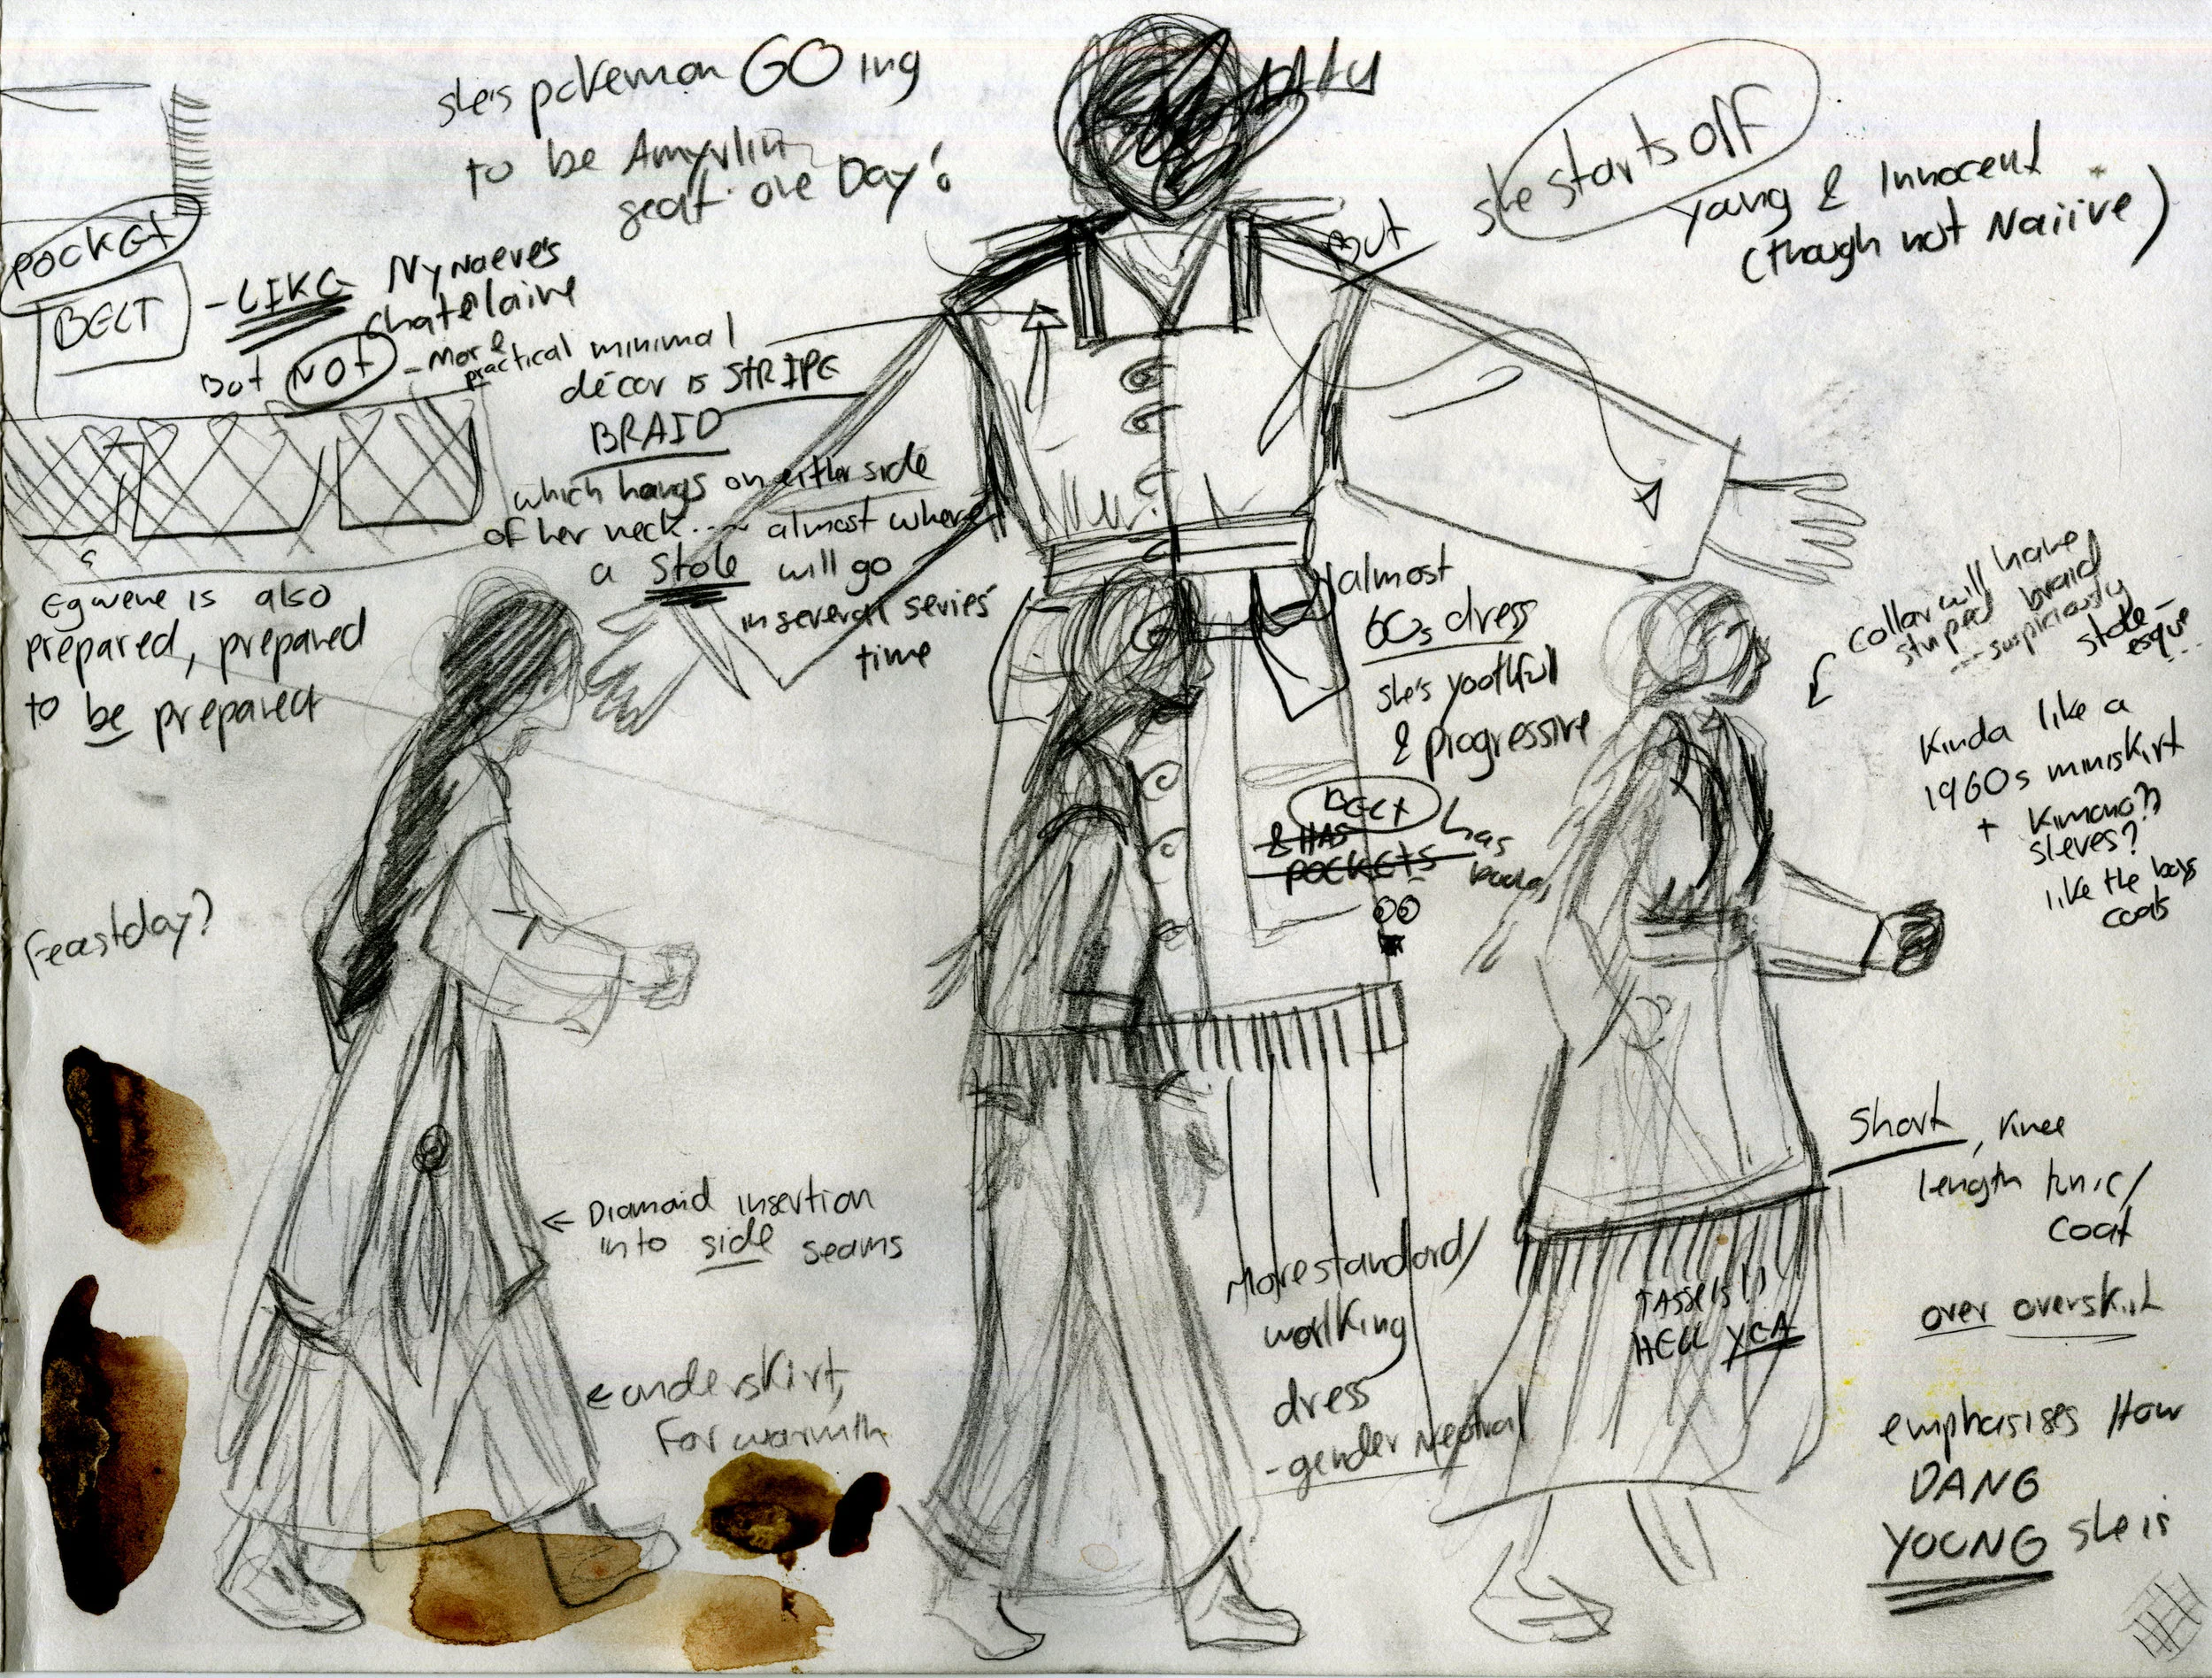 she's pokemon GOing
to be Amyrlin
seat one Day!
But
she starts off
young & Innocent
(though not Naiive)
POCKET
BELT
- LIKE Nynaeve's
chatelaine
But NOT - More
practical minimal
décor is STRIPE
BRAID
which hangs on either side
of her neck.... almost where
a Stole will go
in several series'
time
Egwene is also
prepared, prepared
to be prepared
almost
60s dress
she's youthfull
& progressive
BELT has
& HAS
POCKETS
collar will have
striped braid
... suspiciously
stole-
esque...
Kinda like a
1960s miniskirt
+ Kimono??
sleves?
like the boys
coats
Feastday?
← Diamond insertion
into side seams
← underskirt,
For warmth
More standard/
walking
dress
- gender neutral
TASSELS!!
HELL YEA
Short, knee
length tunic/
coat
over overskirt
emphasises How
DANG
YOUNG she is